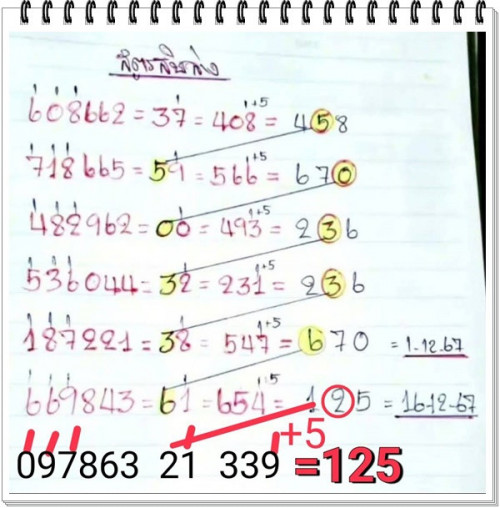 สูตรสิบล่าง
+5
608662 = 37 = 408 = 458
+5
718665 = 59 = 566 = 670
+5
482962 = 00 = 493 = 236
+5
536044 = 32 = 231 = 236
+5
187221 = 38 = 547 = 670 = 1-12-67
+5
669843 = 61 = 654 = 125 = 16-12-67
+5
097863 21 339 =125